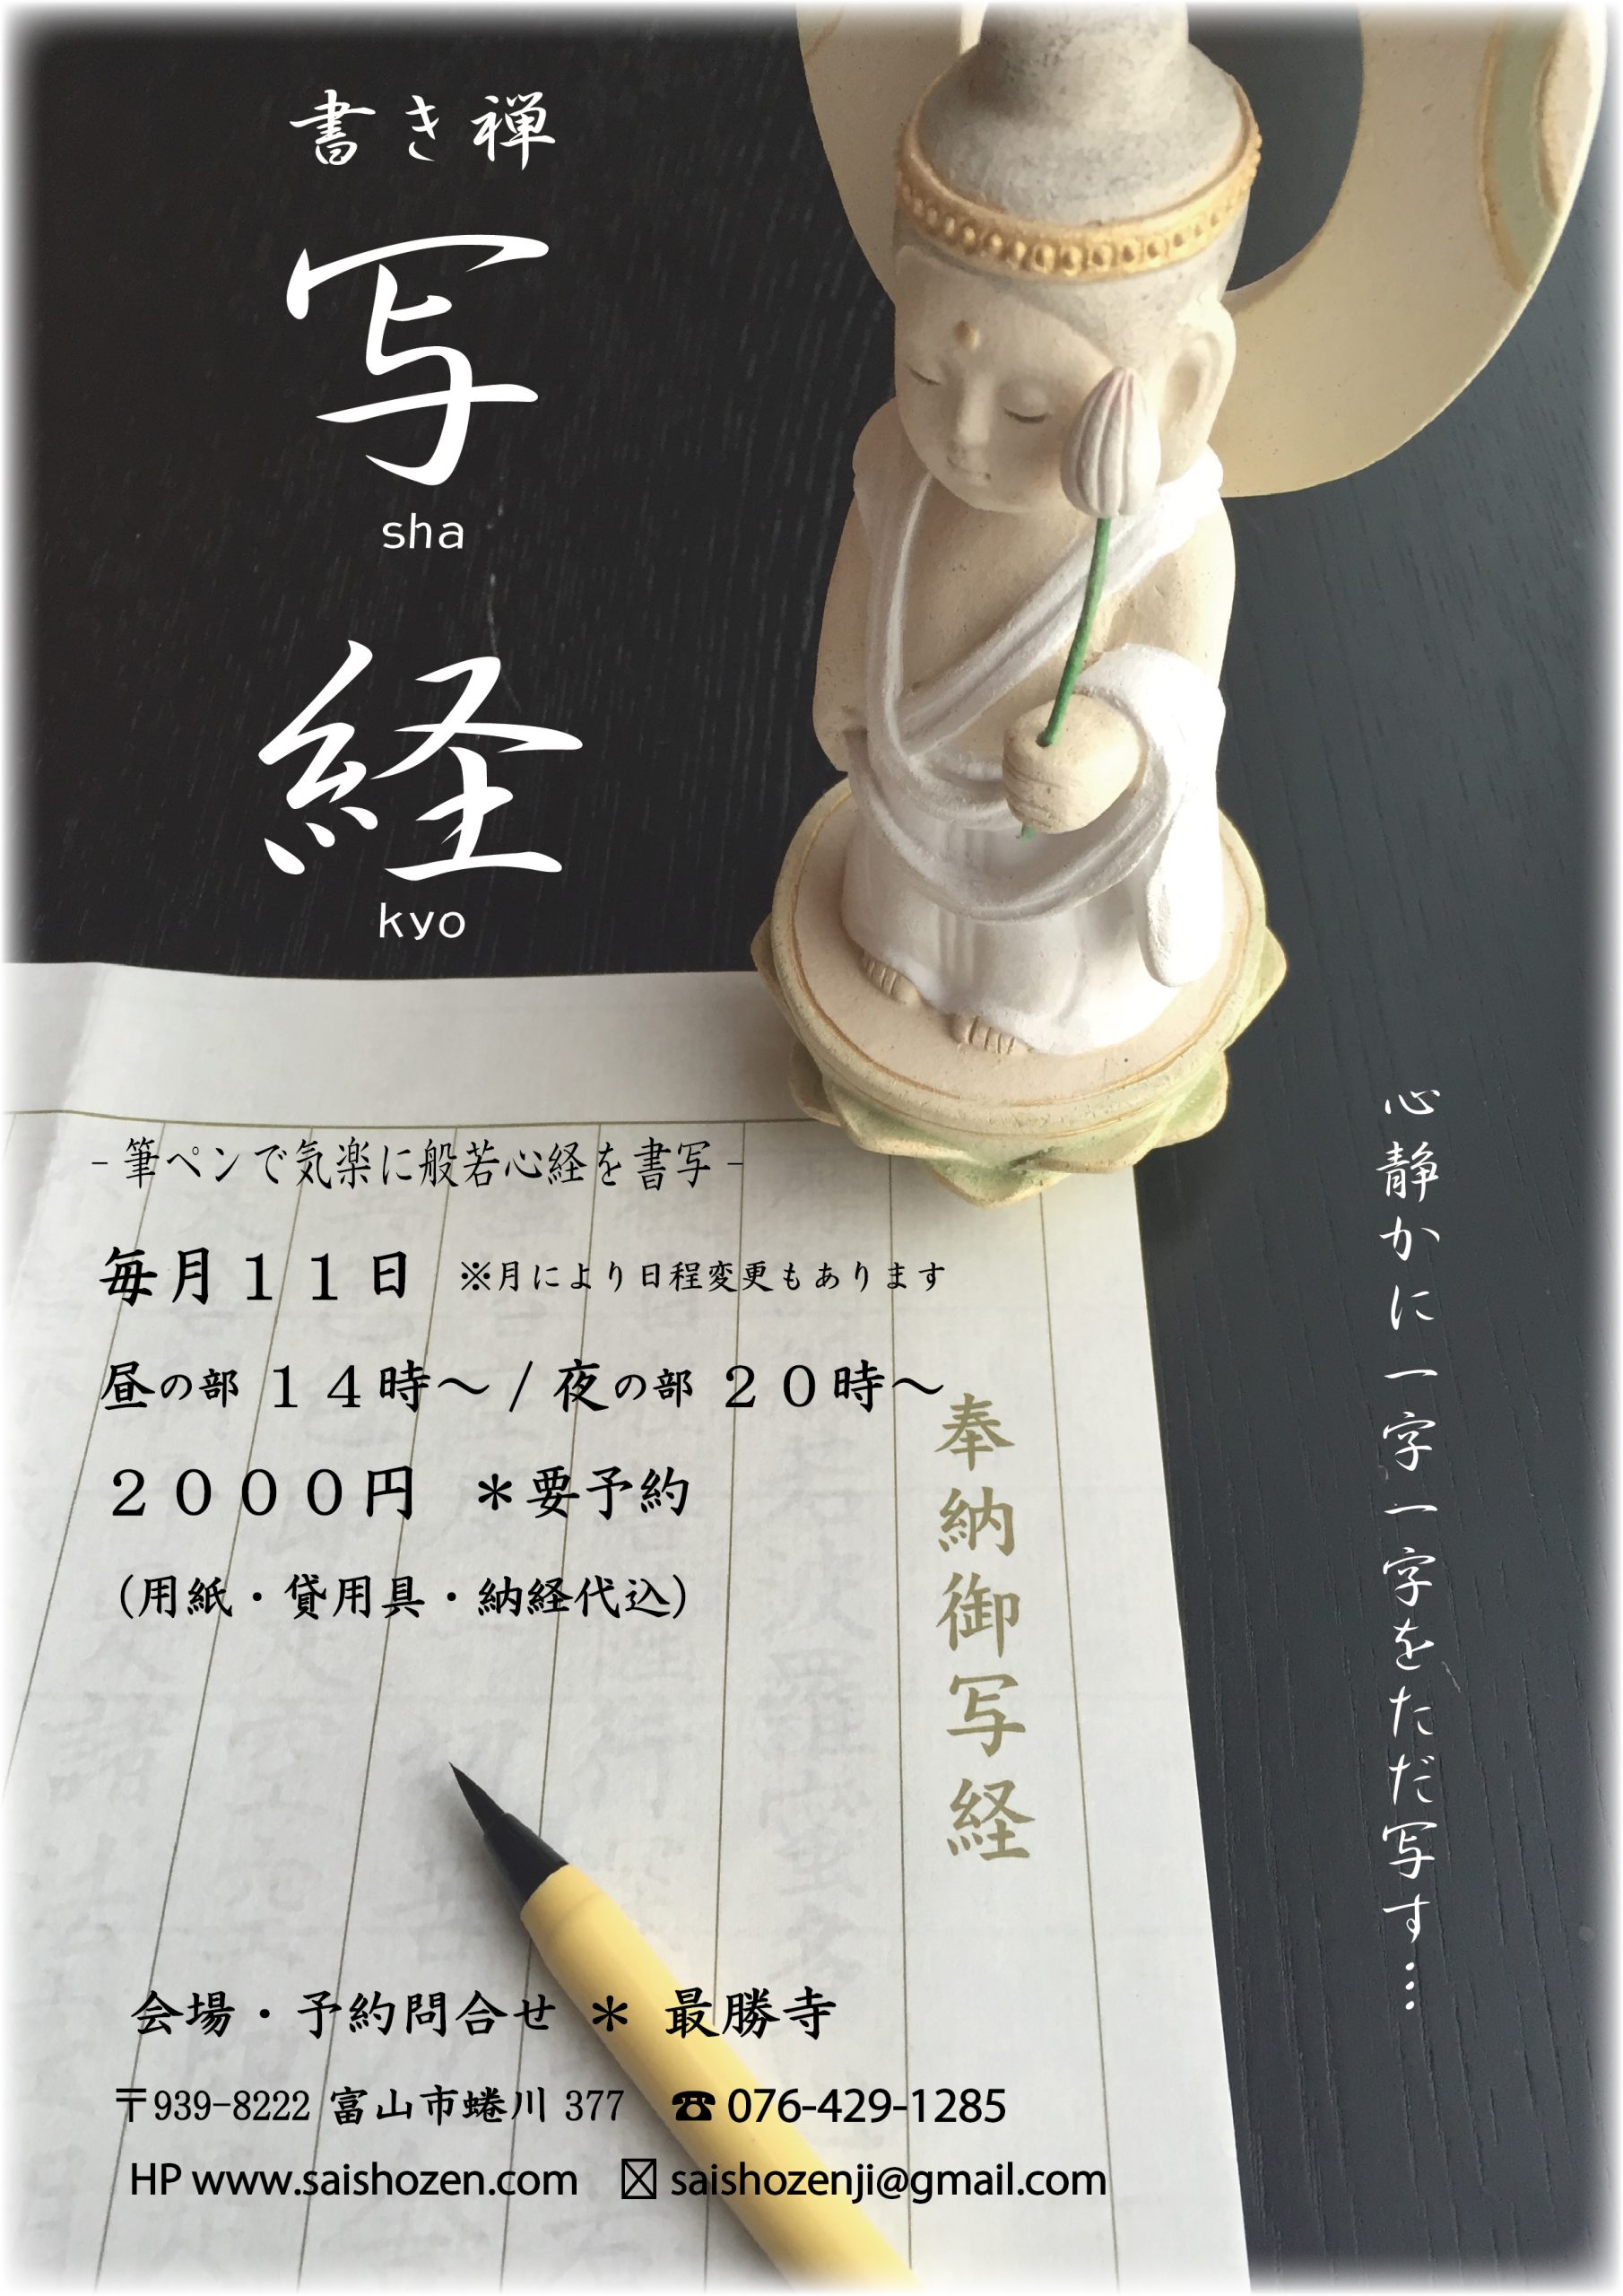 書き禅
写
sha
経
kyo
-筆ペンで気楽に般若心経を書写-
毎月１１日 ※月により日程変更もあります
昼の部 １４時～ / 夜の部 ２０時～
２０００円 ＊要予約
（用紙・貸用具・納経代込）
奉納御写経
心静かに一字一字をただ写す…
会場・予約問合せ ＊ 最勝寺
〒939-8222 富山市蜷川 377 ☎ 076-429-1285
HP www.saishozen.com saishozenji@gmail.com